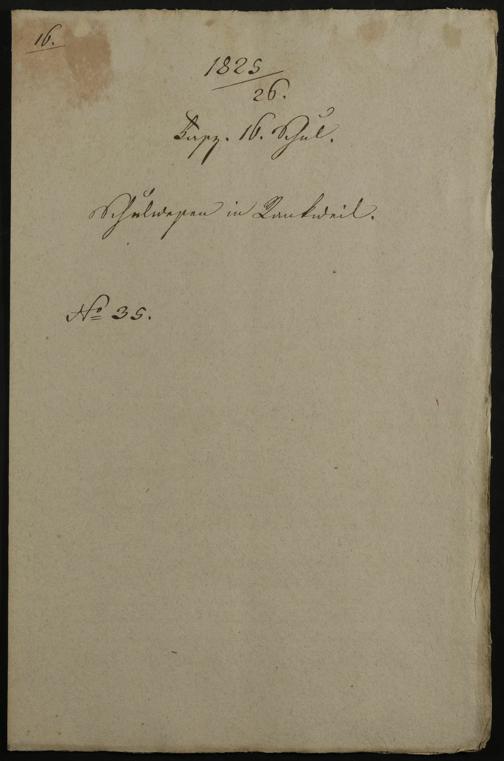 16.
1825
26.
Fasz. 16. Schul.
Schulwesen in Rankweil.
No 35.